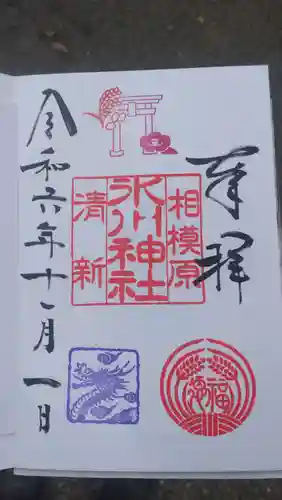 奉拝
相模原
氷川神社
清新
令和六年十一月一日
福